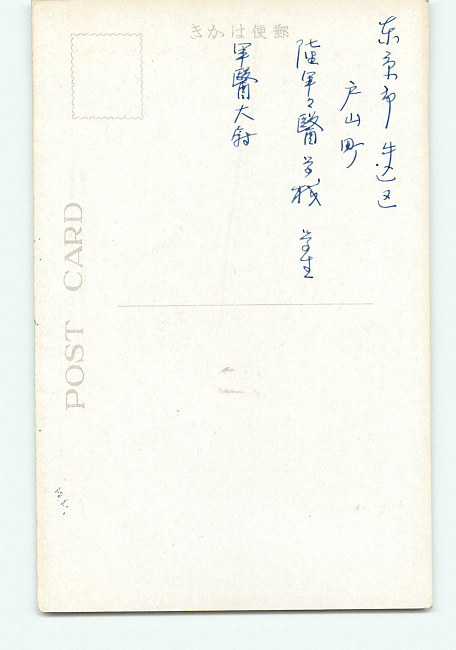 郵便はかき
東京都牛込区
戸山町
陸軍々醫学校 学生
軍醫大尉
POST CARD